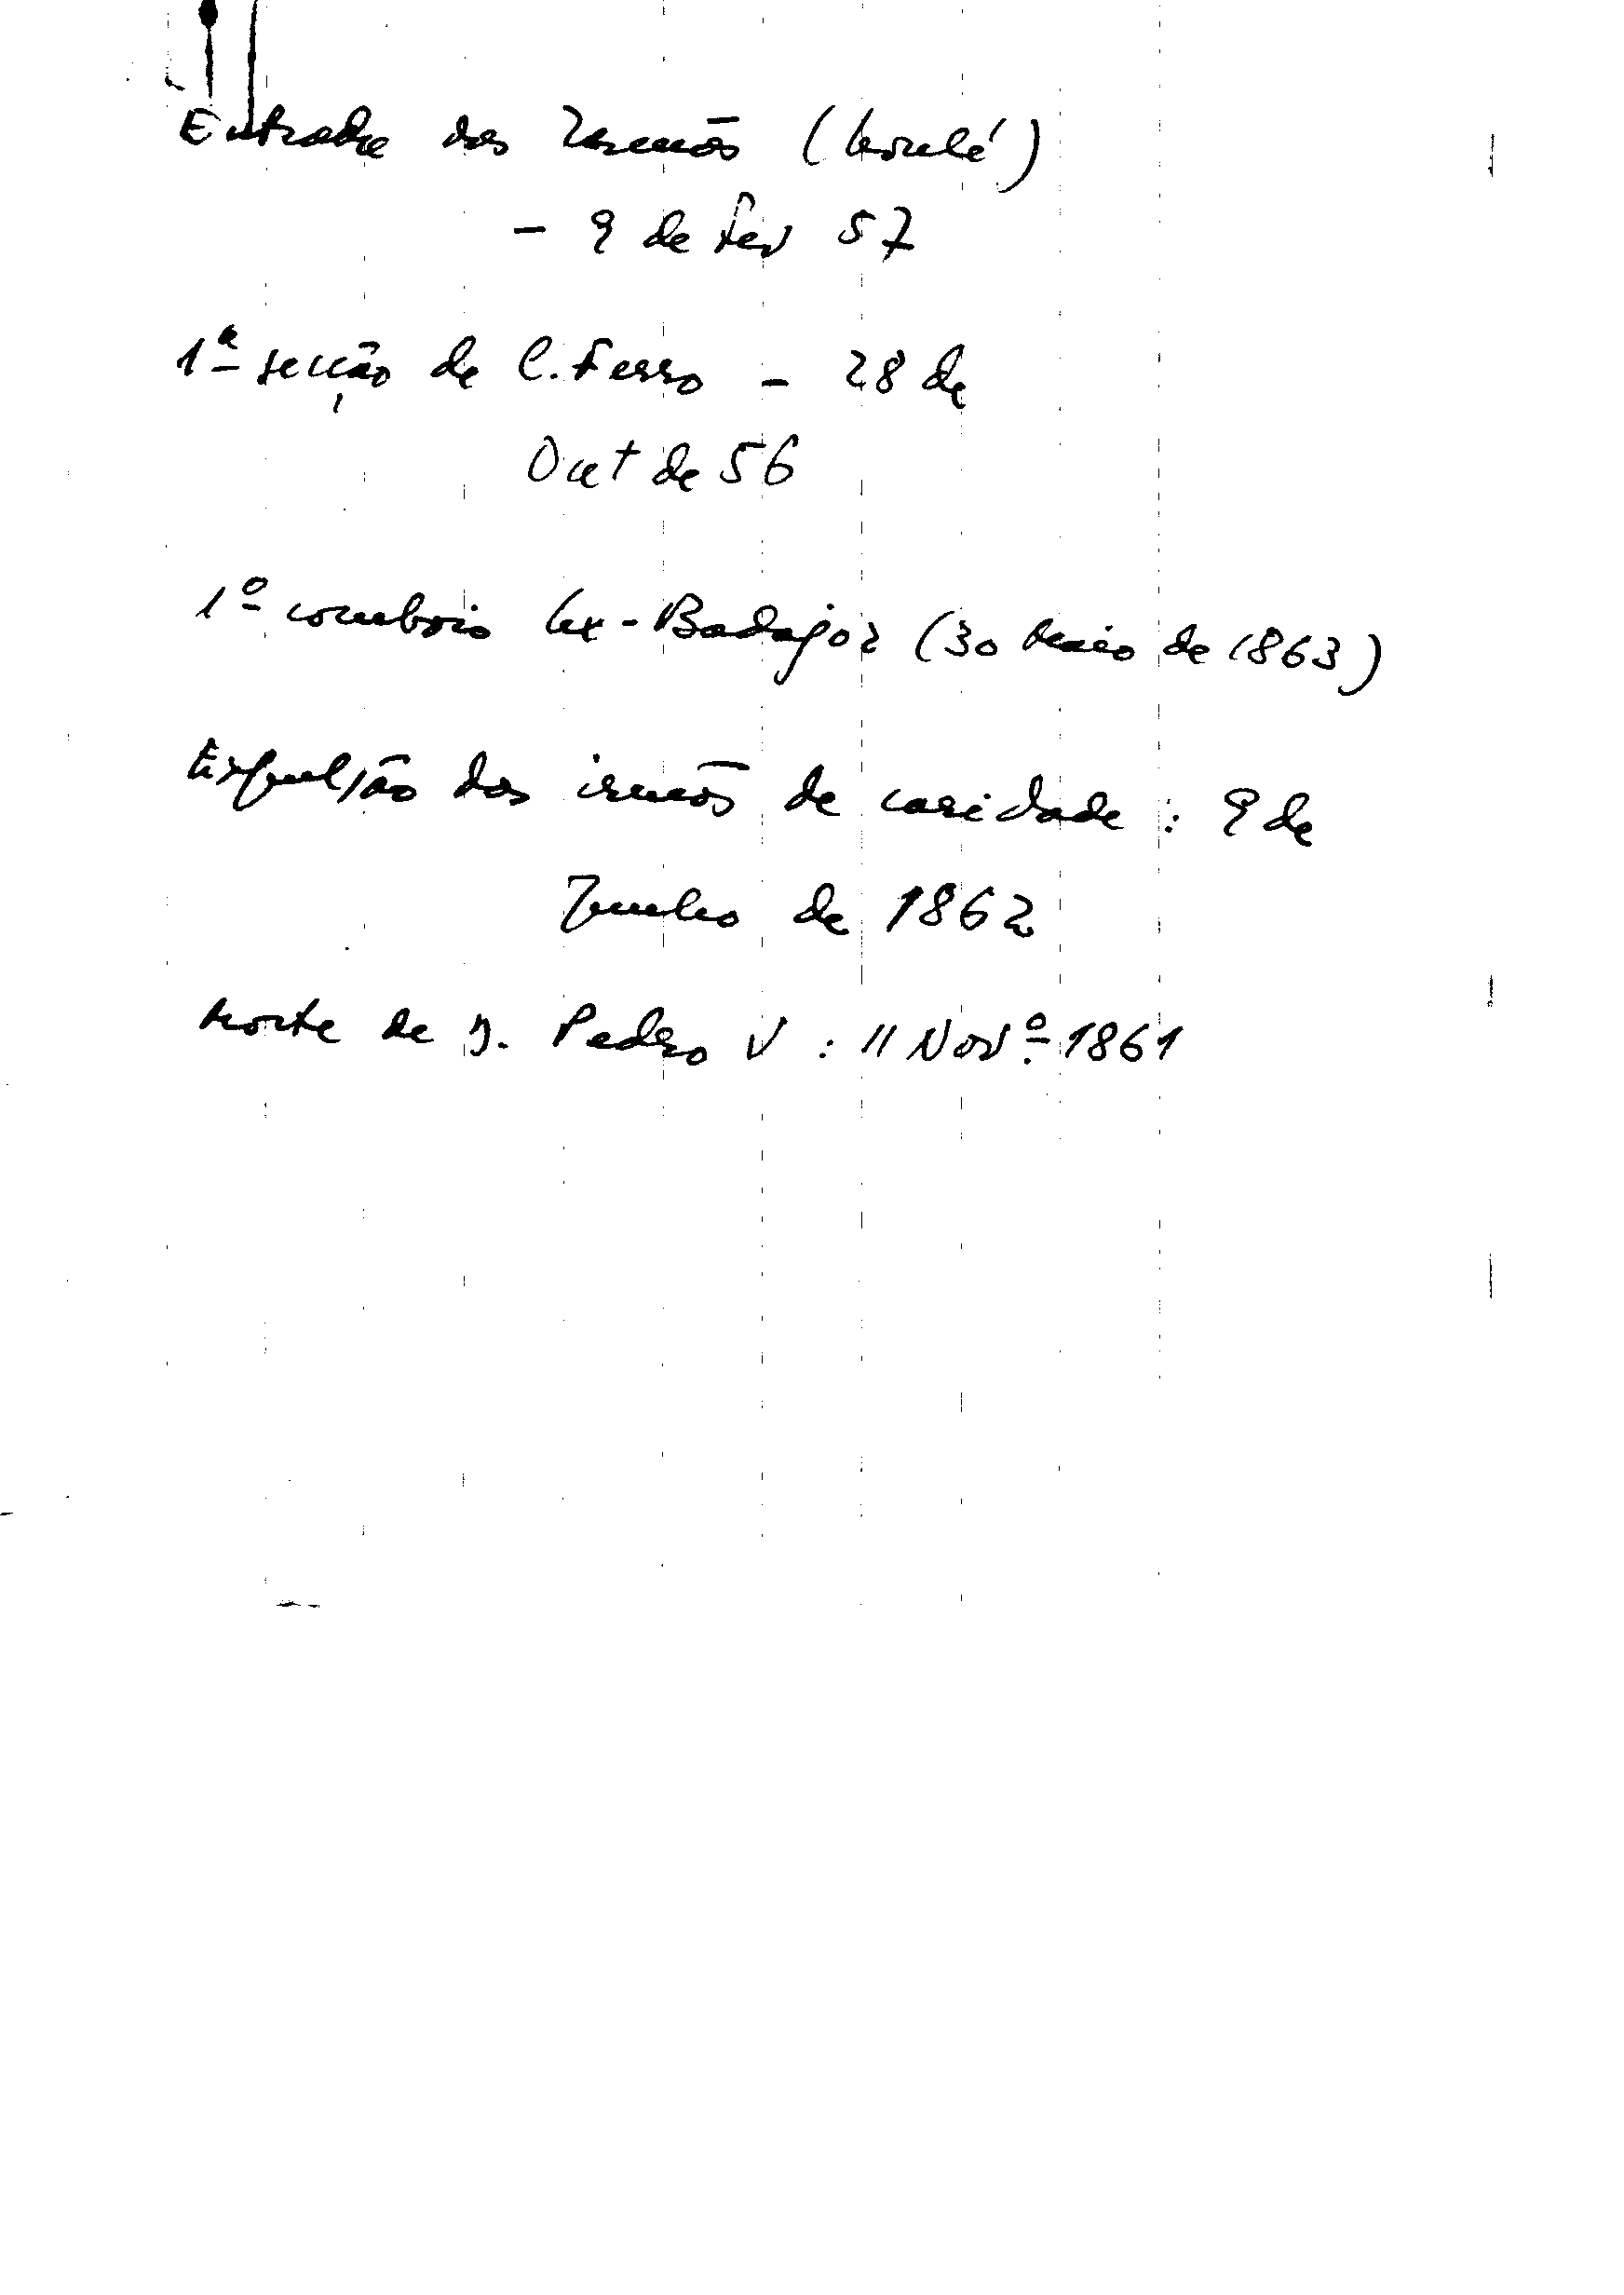 Entrada das Irmãs (Loulé)
- 9 de Fev 57
1ª secção de C. Ferro - 28 de
Out de 56
1º comboio Lx - Badajoz (30 Maio de 1863)
Expulsão das irmãs de caridade : 9 de
Junho de 1862
Morte de D. Pedro V : 11 Nov.º 1861